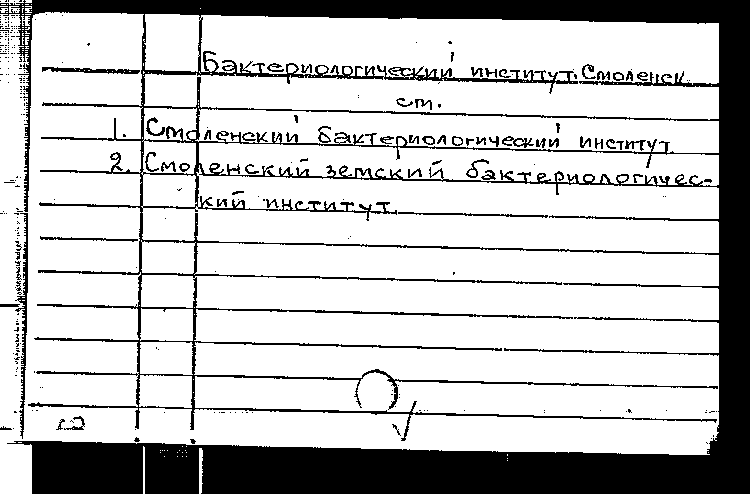 Бактериологический институт. Смоленск
см.
1. Смоленский бактериологический институт
2. Смоленский земский бактериологичес-
кий институт.